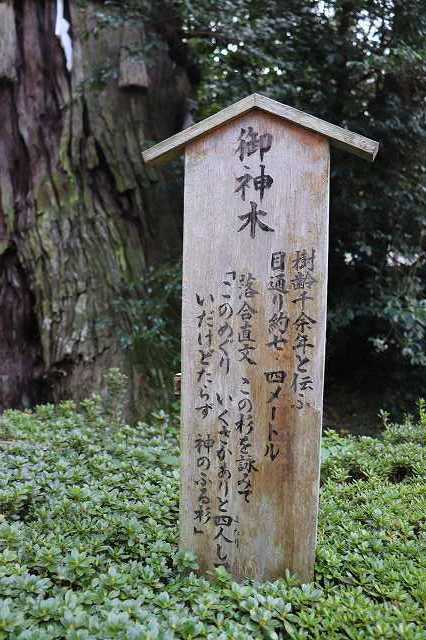 御神木
樹齢千余年と伝ふ
目通り約七・四メートル
落合直文 この杉を詠みて
「このめぐり いくさかありと四人して
いだけどたらず 神のふる杉」